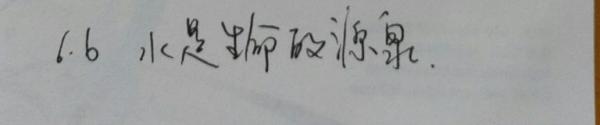 6.6 水是生命的源泉.